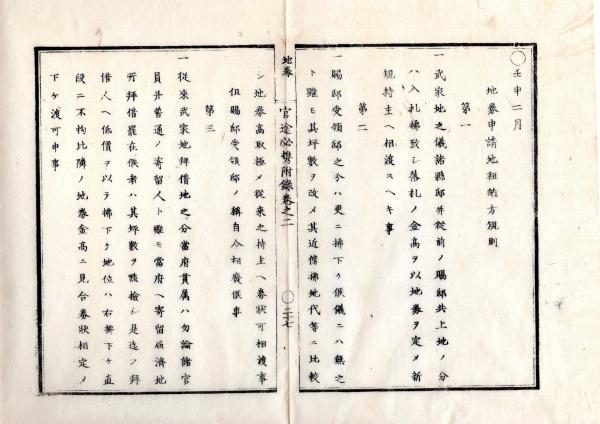 〇壬申二月
地券申請地租納方規則
第一
一武家地之儀諸縣邸并從前ノ賜邸共上地ノ分
ハ入札拂致シ落札ノ金高ヲ以地券ヲ定メ新
規持主ヘ相渡スヘキ事
第二
一賜邸受領邸之分ハ更ニ拂下ケ候儀ニハ無之
ト雖モ其坪數ヲ改メ其近傍拂地代等ニ比較
地券
官途必携附錄卷之二
〇二十七
シ地券高取極メ從來之持主ヘ券狀可相渡事
但賜邸受領邸ノ稱自今相廢候事
第三
一從來武家地拜借地之分當府貫属ハ勿論諸官
員并普通ノ寄留人ト雖モ當府ヘ寄留届濟地
所拜借罷在候者ハ其坪數ヲ檢シ是迄ノ拜
借人ヘ低價ヲ以テ拂下ケ地位ハ右拂下ケ直
段ニ不拘比隣ノ地券金高ニ見合券狀相定メ
下ケ渡可申事